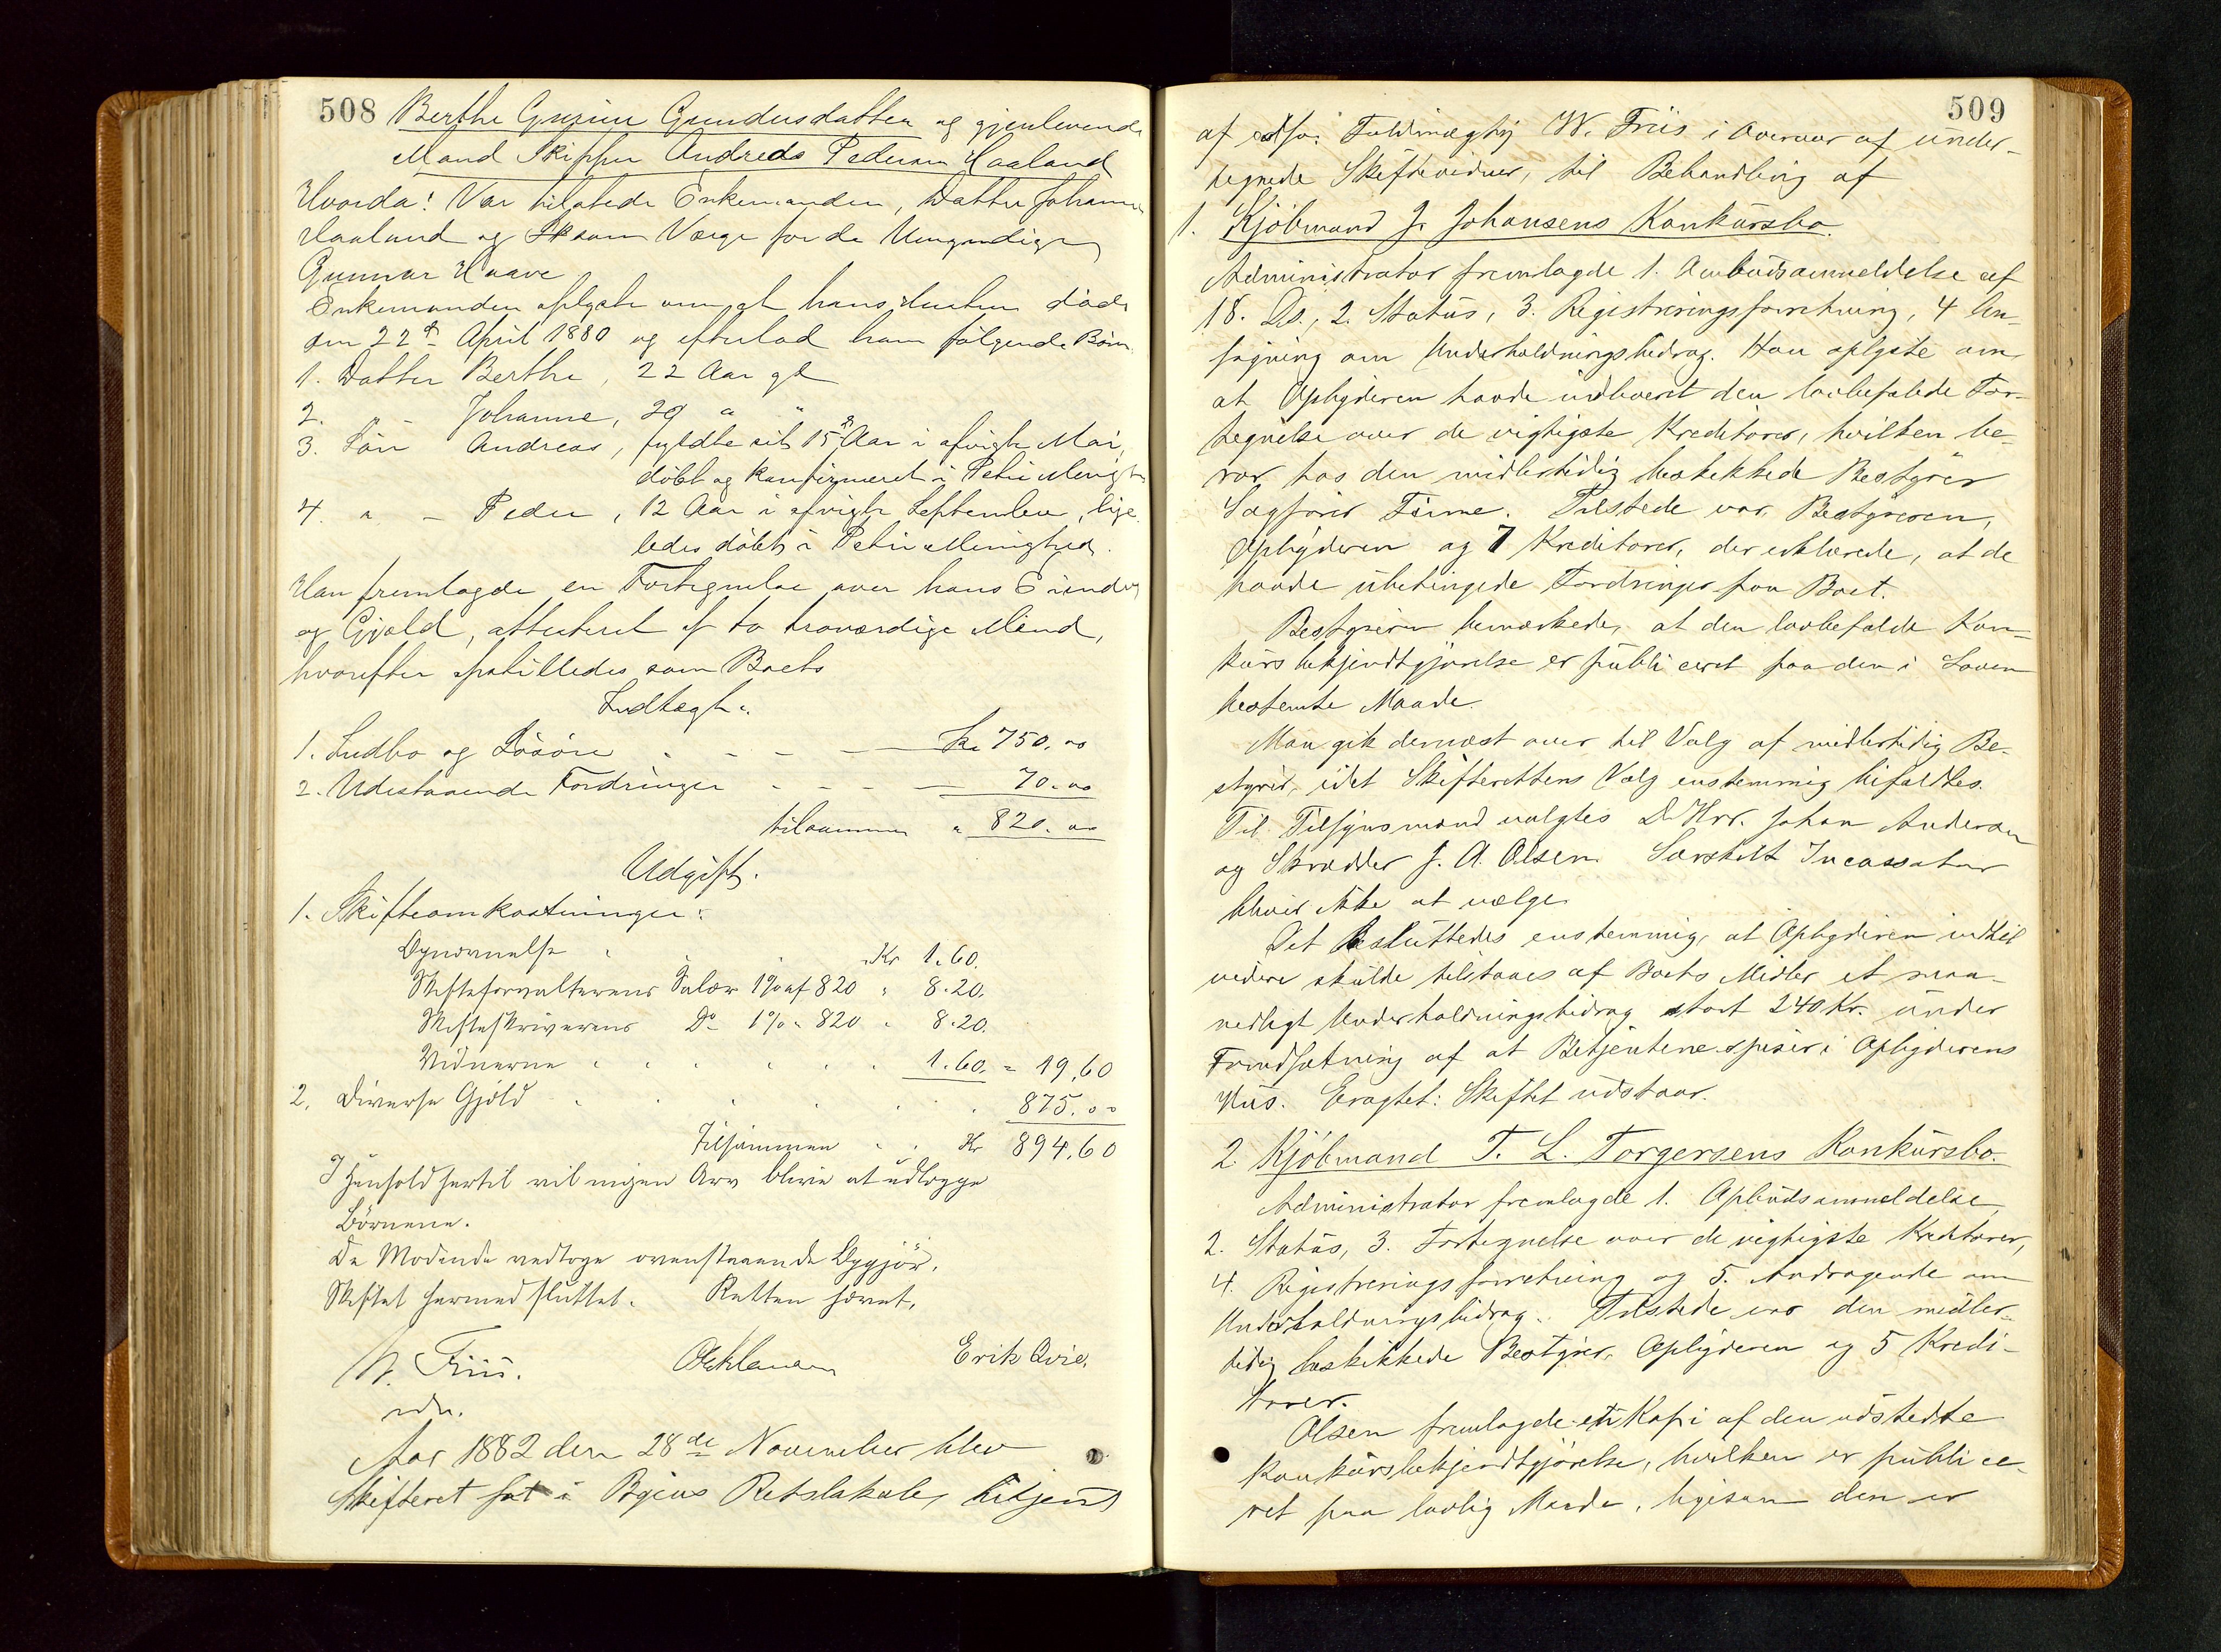 508
Berthe Gurine Gundersdatter og gjenlevende
Mand Skipper Andreas Pedersen Haaland
Hvorda: Var tilstede Enkemanden, Datter Johanne
Haaland og som Værge for de Umyndige
Gunnar Haave
Enkemanden oplyste om, at hans Hustru døde
den 22de April 1880 og efterlod ham følgende Børn
1. Datter Berthe, 22 Aar gl
2. " – Johanne, 29 " "
3. Søn Andreas, fyldte sit 15de Aar i afvigte Mai,
døbt og konfirmeret i Petri Menigh
4. " – Peder, 12 Aar i afvigte September, lige
ledes døbt i Petri Menighed.
Han fremlagde en Fortegnelse over hans Eiendele
og Gjæld, attesteret af to troværdige Mænd,
hvorefter opstilledes som Boets
Indtægt.
1. Indbo og Løsøre – – – Kr 750.00
2. Udestaaende Fordringer – – – 70.00
tilsammen " 820.00
Udgift.
1. Skifteomkostninger:
Opnævnelse Kr 1.60.
Skifteforvalterens Salær 1% af 820 " 8.20.
Skifteskriverens Do 1% " 820 " 8.20.
Vidnerne " 1.60. = 19,60
2. Diverse Gjæld 875.00
Tilsammen Kr 894,60
I Henhold hertil vil ingen Arv blive at udlægge
Børnene.
De Mødende vedtoge ovenstaaende Opgjør.
Skiftet hermed sluttet. Retten hævet.
W. Friis. Erik Qvie.
edsv.
Aar 1882 den 28de November blev
Skifteret sat i Byens Retslokale, betjent
509
af edsv. Fuldmægtig W. Friis i Overvær af under-
tegnede Skiftevidner, til Behandling af
1. Kjøbmand J. Johansens Konkursbo.
Administrator fremlagde 1. Anbudsanmeldelse af
18. Ds., 2. Status, 3. Registreringsforretning, 4 An-
søgning om Underholdningsbidrag. Han oplyste om,
at Opbyderen havde indleveret den lovbefalede For-
tegnelse over de vigtigste Kreditorer, hvilken be-
ror hos den midlertidig beskikkede Bestyrer
Sagfører Time. Tilstede var Bestyreren,
Opbyderen og 7 Kreditorer, der erklærede, at de
havde ubetingede Fordringer paa Boet.
Bestyreren bemærkede, at den lovbefalede Kon-
kursbekjendtgjørelse er publiceret paa den i Loven
bestemte Maade.
Man gik dernæst over til Valg af midlertidig Be-
styrer, idet Skifterettens Valg enstemmig bifaldtes.
Til Tilsynsmænd valgtes D'Hrr. Johan Andersen
og Skrædder J. A. Olsen. Særskilt Incassator
bliver ikke at vælge.
Det besluttedes enstemmig, at Opbyderen indtil
videre skulde tilstaaes af Boets Midler et maa-
nedligt Underholdningsbidrag stort 240 Kr. under
Forudsætning af at Betjentene spiser i Opbyderens
Hus. Eragtet: Skiftet udstaar.
2. Kjøbmand T. L. Torgersens Konkursbo.
Administrator fremlagde 1. Opbudsanmeldelse,
2. Status, 3. Fortegnelse over de vigtigste Kreditorer,
4. Registreringsforretning og 5. Andragende om
Underholdningsbidrag. Tilstede var den midler-
tidig beskikkede Bestyrer, Opbyderen og 5 Kredi-
torer.
Olsen fremlagde en Kopi af den udstedte
Konkursbekjendtgjørelse, hvilken er publice-
ret paa lovlig Maade, ligesom den er